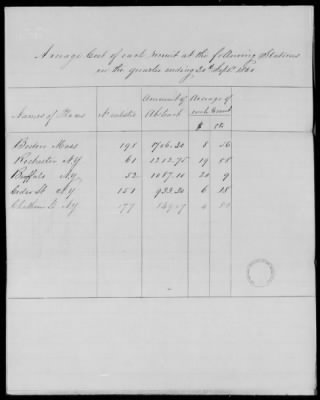 Average Cost of each recruit at the following Stations
in the quarter ending 30th Sept. 1860
Names of Places No enlisted Amount of Abstract Average of each Recruit
$ cts
Boston Mass 198 1706.20 8
Rochester NY 61 1212.75 19 88
Buffalo NY 52 1087.10 20 9
Cedar St NY 151 933.20 6 18
Chatham St NY 177